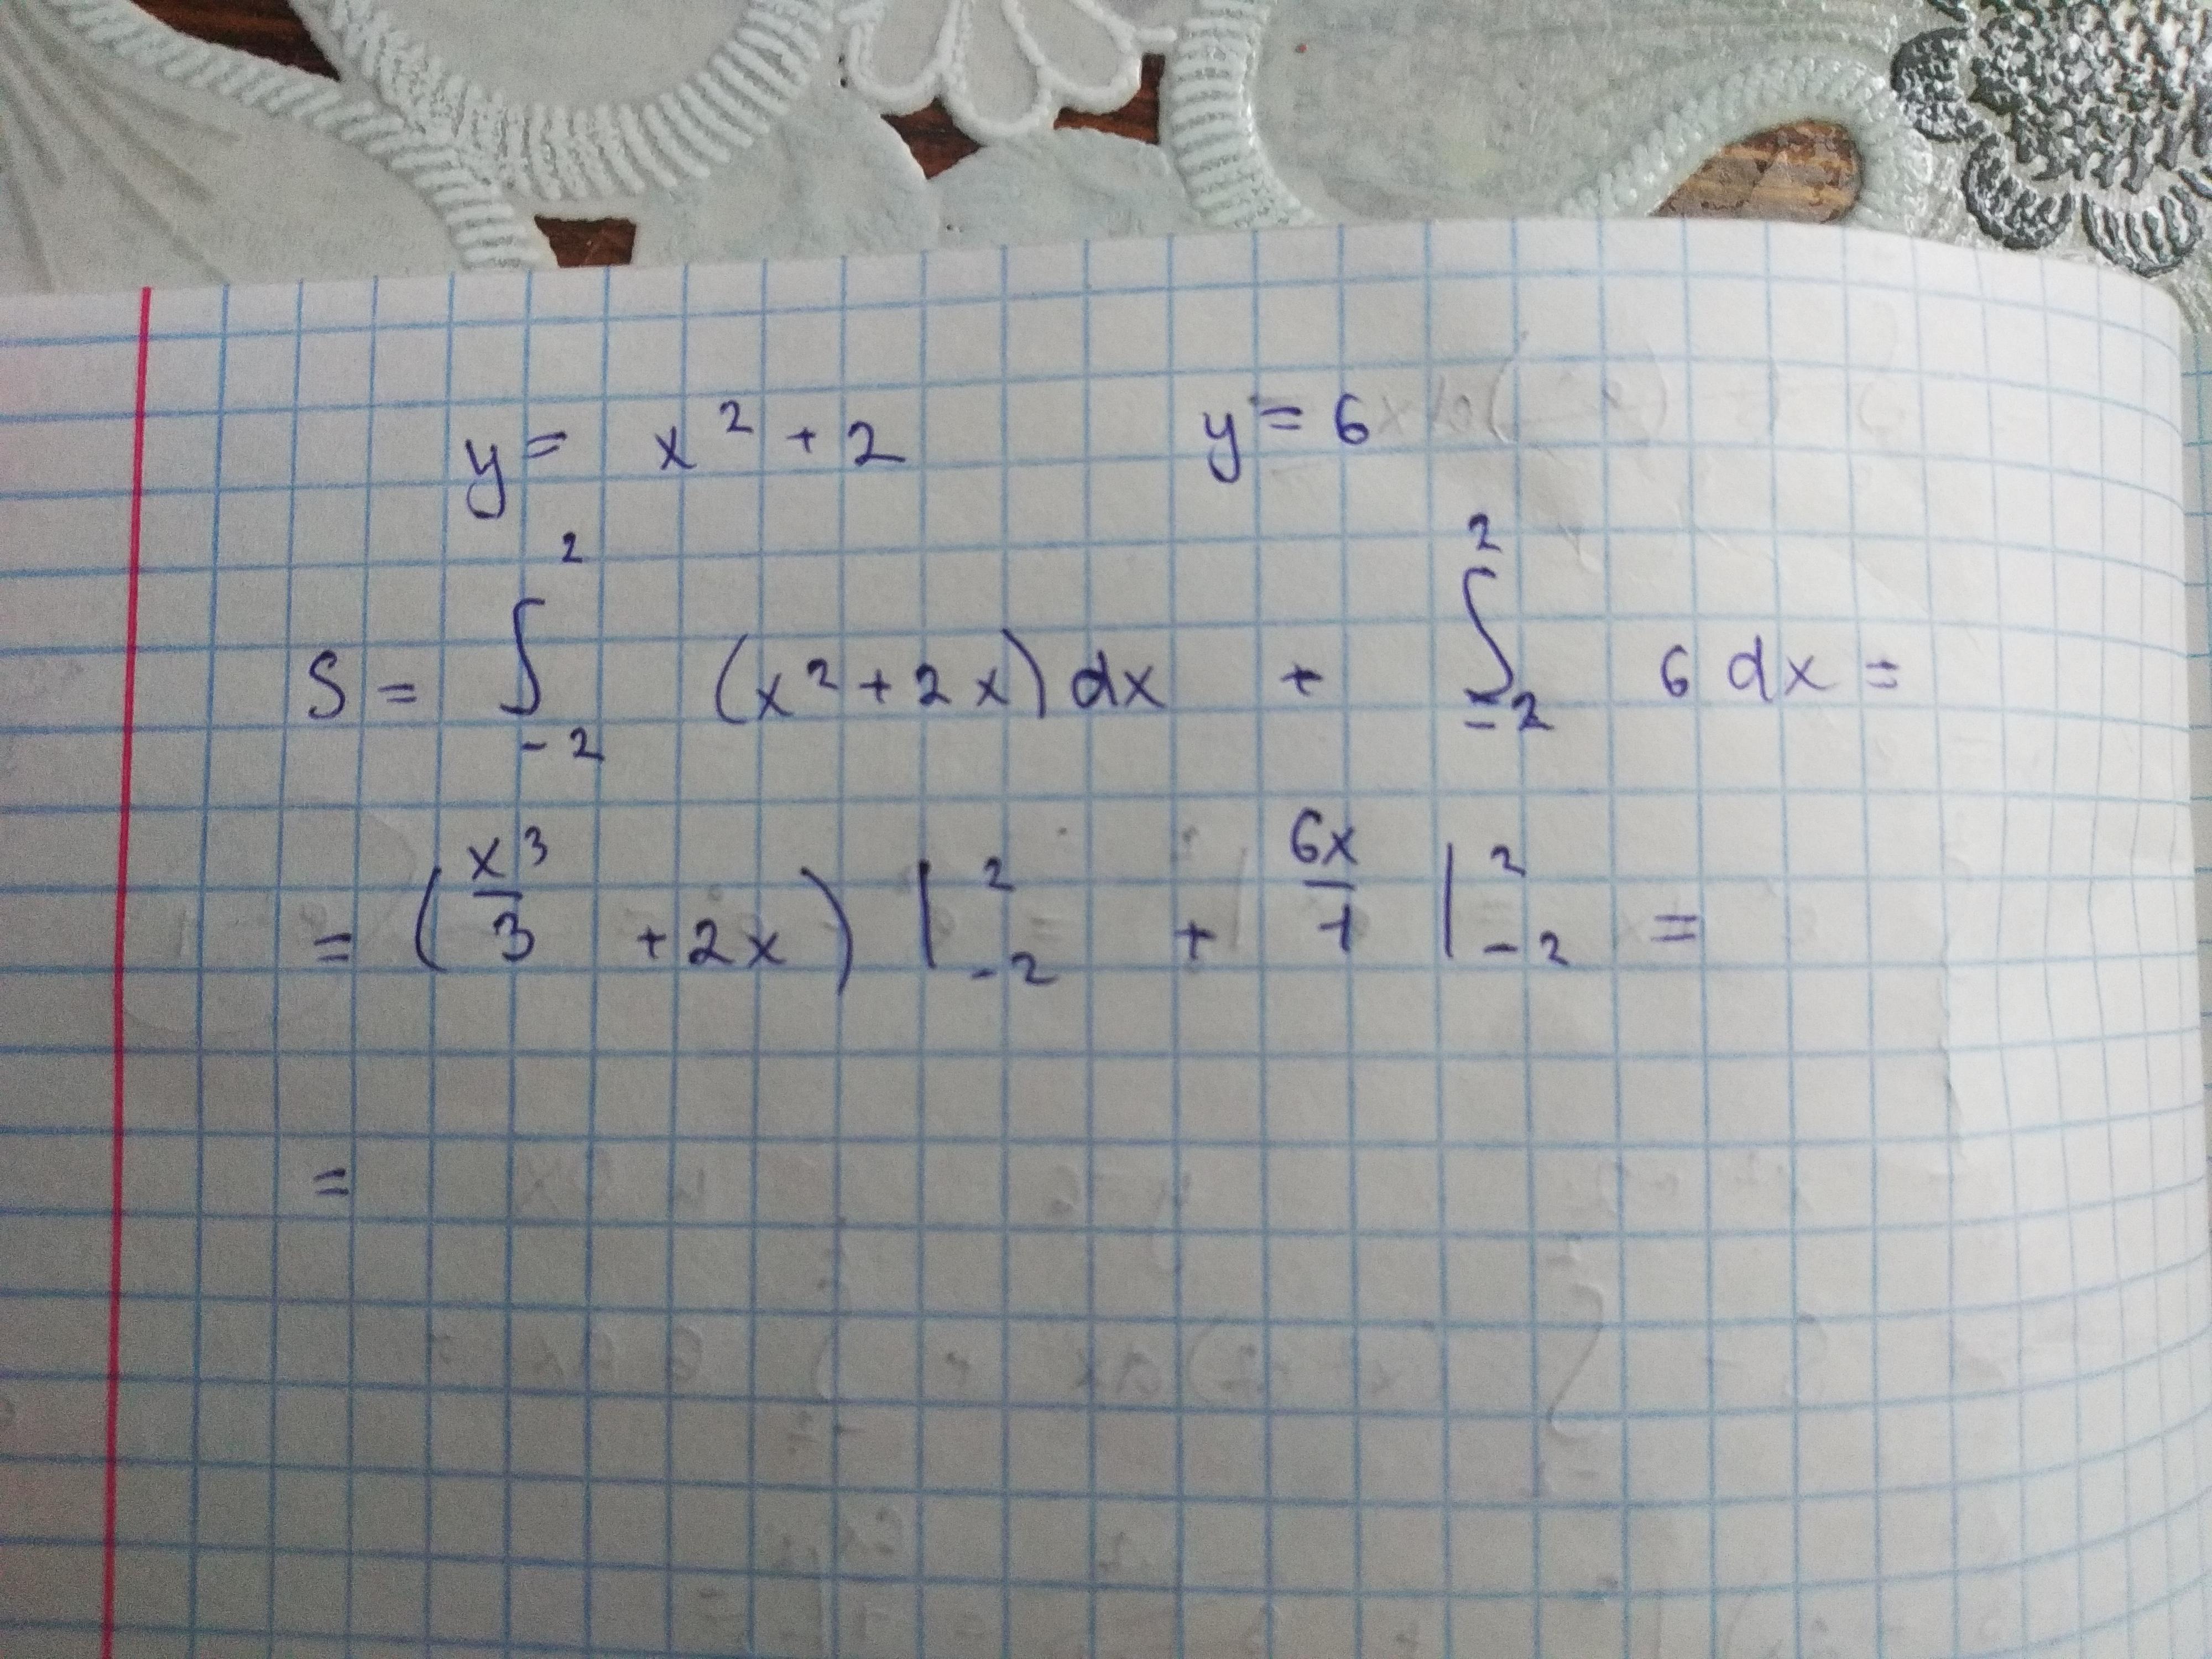 y = x² + 2 y = 6
S = ∫₋₂² (x² + 2x) dx + ∫₋₂² 6 dx =
= (x³/3 + 2x) |₋₂² + 6x/1 |₋₂² =
=